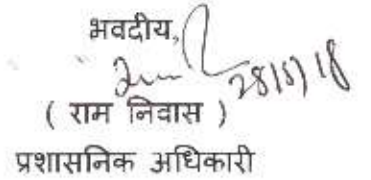 भवदीय,
28/5/18
( राम निवास )
प्रशासनिक अधिकारी